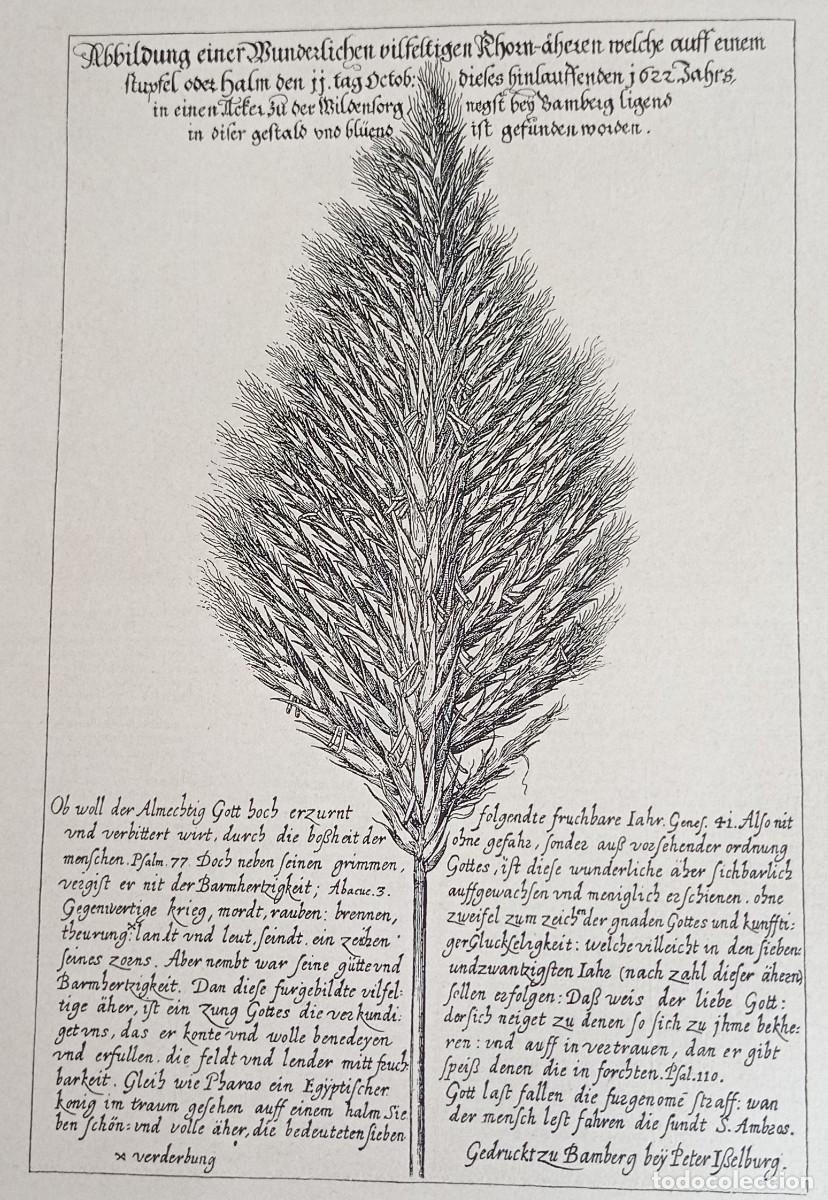 Abbildung einer Wunderlichen vilfeltigen Khorn-äheren welche auff einem
stupfel oder halm den jj. tag Octob: dieses hinlauffenden j622 Jahrs,
in einen Acker zu der Wildensorg negst beÿ Bamberg ligend
in diser gestald vnd blüend ist gefunden worden.
Ob woll der Almechtig Gott hoch erzurnt
vnd verbittert wirt, durch die boßheit der
menschen. Psalm. 77. Doch neben seinen grimmen,
vergist er nit der Barmhertzigkeit; Abacuc. 3.
Gegenwertige krieg, mordt, rauben: brennen,
theurung × landt vnd leut, seindt. ein zeichen
seines zorns. Aber nembt war seine gütte vnd
Barmhertzigkeit. Dan diese furgebildte vilfel-
tige äher, ist ein zung Gottes die verkundi-
get vns, das er konte vnd wolle benedeyen
vnd erfullen. die feldt vnd lender mitt fruch
barkeit. Gleih wie Pharao ein Egÿptischer
konig im traum gesehen auff einem halm Sie
ben schön: vnd volle äher, die bedeuteten sieben
× verderbung
folgendte fruchbare Iahr. Genes. 41. Also nit
ohne gefahr, sonder auß vorsehender ordnung
Gottes, ist diese wunderliche äher sichbarlich
auffgewachsen vnd meniglich erschienen. ohne
zweifel zum zeichen der gnaden Gottes und kunffti-
ger Gluckseligkeit: welche villeicht in den sieben
undzwantzigsten Iahr (nach zahl dieser ähern)
sollen erfolgen: Daß weis der liebe Gott:
der sich neiget zu denen so sich zu jhme bekhe-
ren: vnd auff in vertrauen, dan er gibt
speiß denen die in forchten. Psal. 110.
Gott last fallen die furgenome straff: wan
der mensch lest fahren die sundt S. Ambros.
Gedruckt zu Bamberg beÿ Peter Ißelburg.
todocoleccion